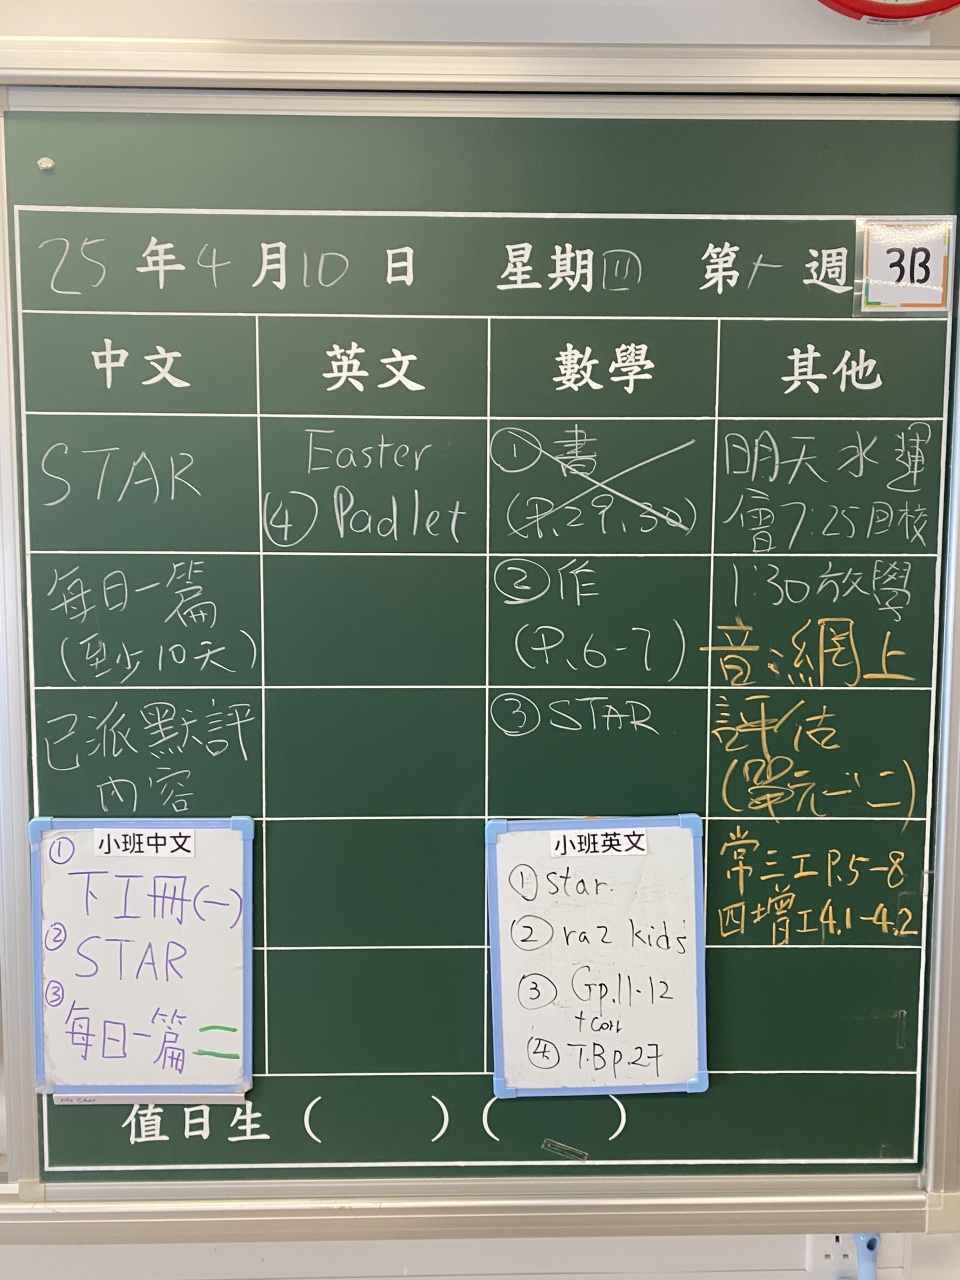 25年4月10日 星期四 第十週 3B
中文 英文 數學 其他
STAR
每日一篇
(至少10天)
已派默評
內容
Easter
④ Padlet
① 書
(P.29,30)
② 作
(P.6-7)
③ STAR
明天水運
會7:25回校
1:30放學
音:網上
評估
(單元一、二)
常三工P.5-8
四增工4.1-4.2
小班中文
① 下工冊(一)
② STAR
③ 每日一篇
小班英文
① star.
② raz kids
③ Gp.11-12
+ corr
④ T.B p.27
值日生 ( ) ( )